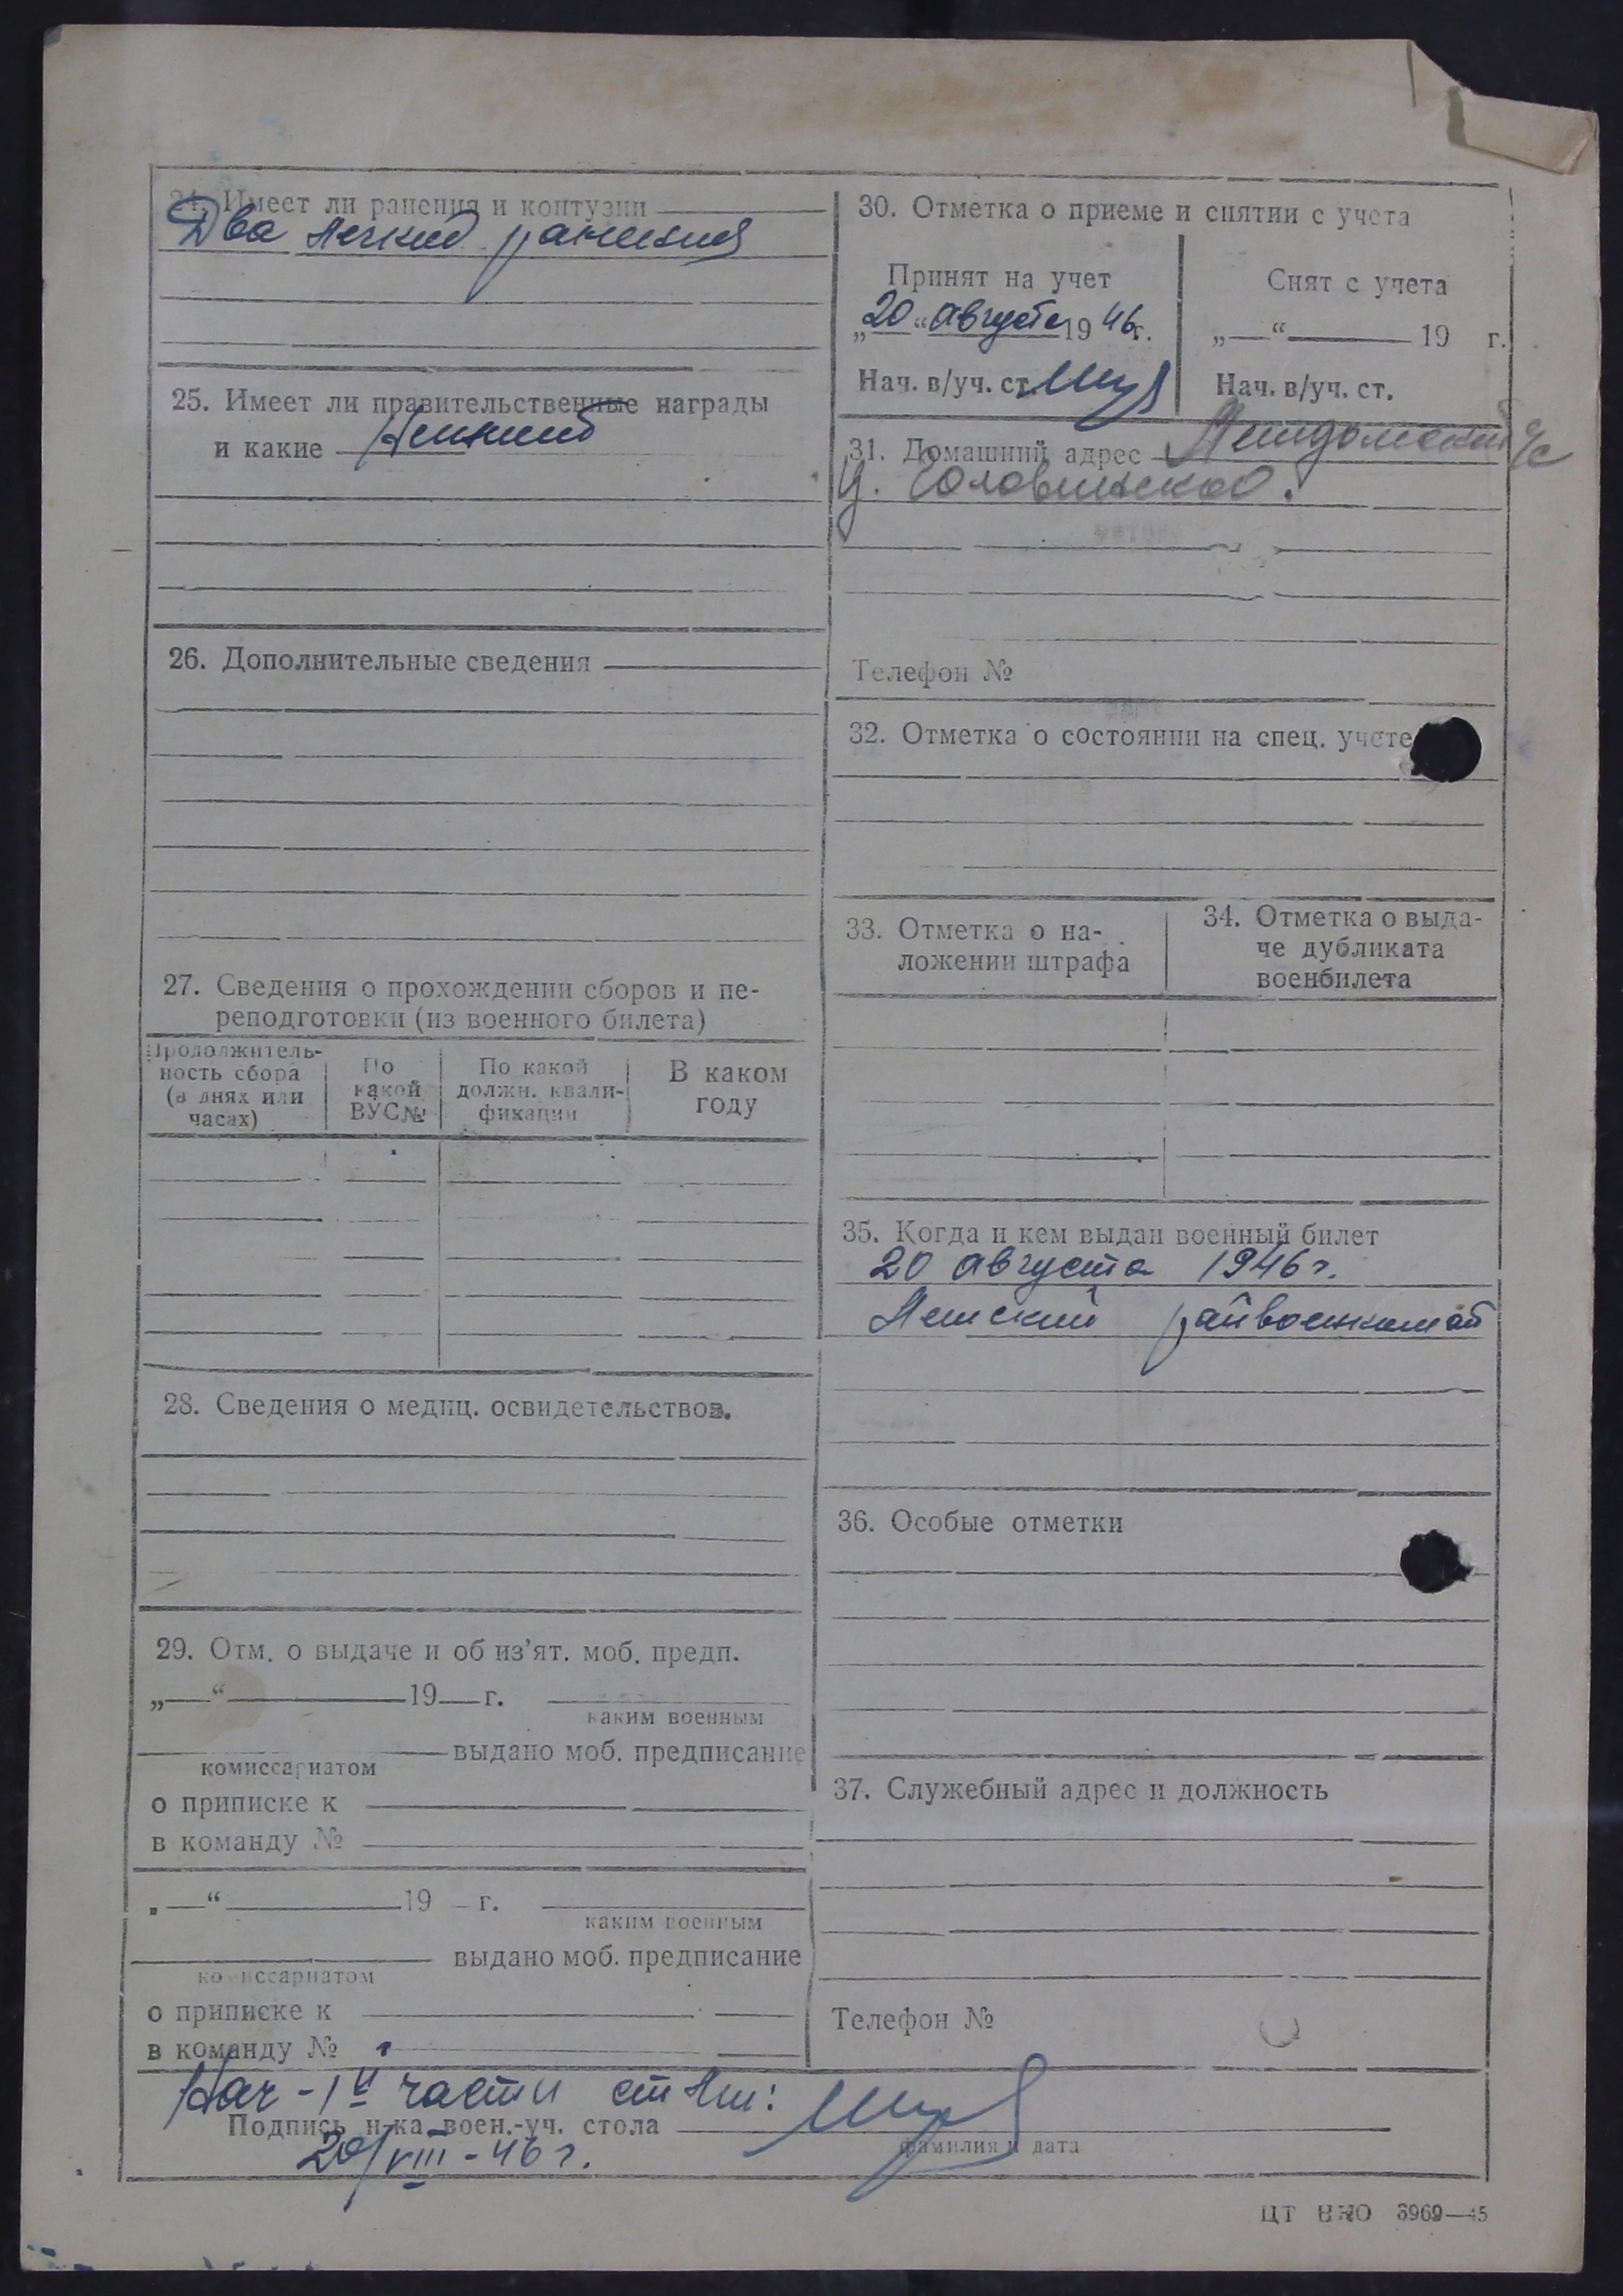 24. Имеет ли ранения и контузии
Два легких ранения
25. Имеет ли правительственные награды
и какие
26. Дополнительные сведения
27. Сведения о прохождении сборов и пе-
реподготовки (из военного билета)
Продолжитель-
ность сбора
(в днях или
часах)
По
какой
ВУС№
По какой
должн. квали-
фикации
В каком
году
28. Сведения о медиц. освидетельствов.
29. Отм. о выдаче и об из’ят. моб. предп.
„ “ 19 г.
каким военным
выдано моб. предписание
комиссариатом
о приписке к
в команду №
„ “ 19 г.
каким военным
выдано моб. предписание
комиссариатом
о приписке к
в команду №
30. Отметка о приеме и снятии с учета
Принят на учет
„20“ августа 1946г.
Нач. в/уч. ст.
Снят с учета
„ “ 19 г.
Нач. в/уч. ст.
31. Домашний адрес с/с
Телефон №
32. Отметка о состоянии на спец. учете
33. Отметка о на-
ложении штрафа
34. Отметка о выда-
че дубликата
военбилета
35. Когда и кем выдан военный билет
20 августа 1946 г.
райвоенкомат
36. Особые отметки
37. Служебный адрес и должность
Телефон №
Нач - 1й части
Подпись н-ка воен.-уч. стола
20/VIII - 46 г.
фамилия и дата
ЦТ 3969—45